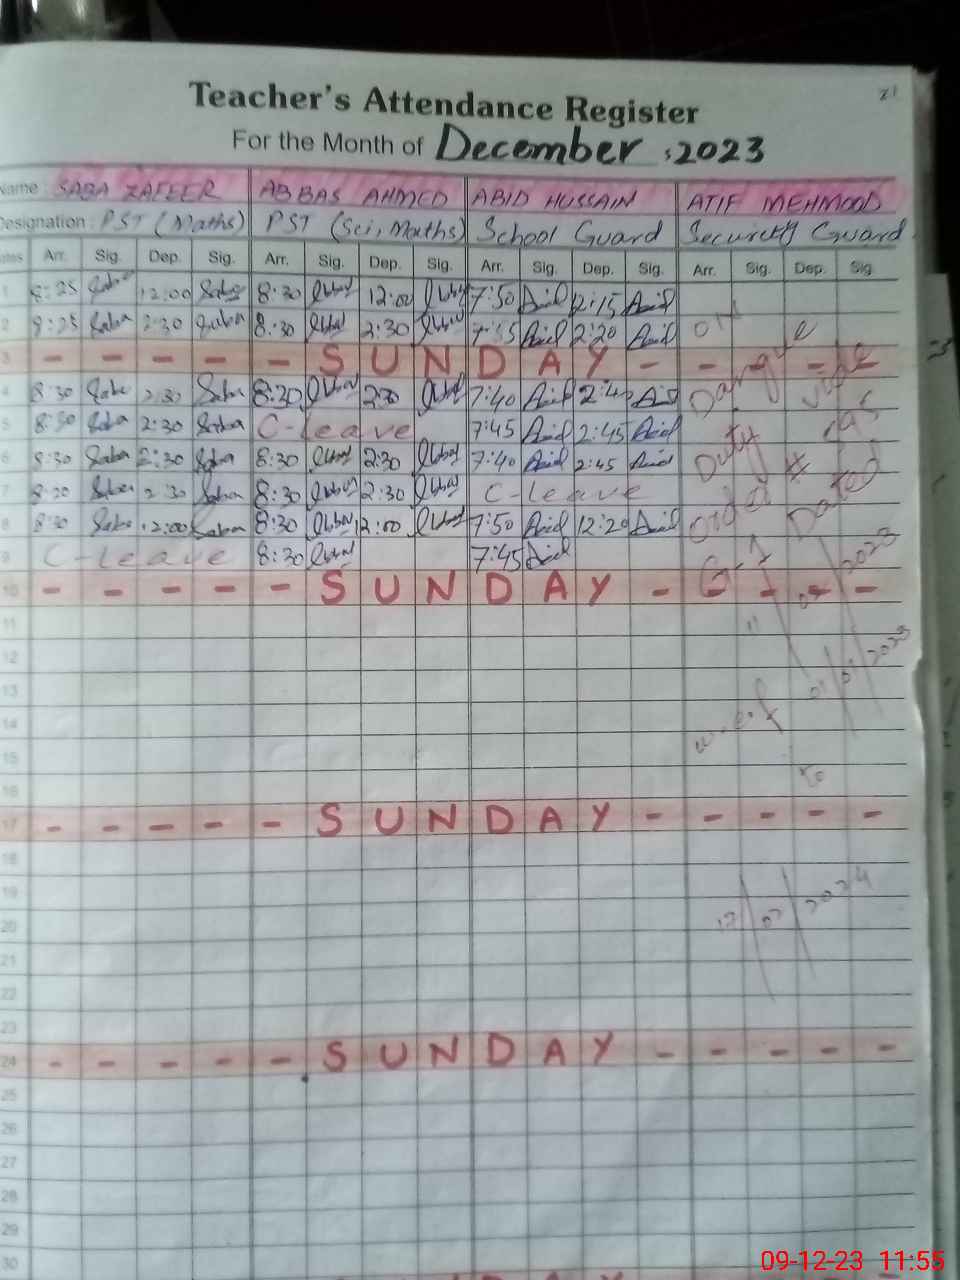 21
Teacher's Attendance Register
For the Month of December, 2023
Name: SABA ZAFEER ABBAS AHMED ABID HUSSAIN ATIF MEHMOOD
Designation: PST (Maths) PST (Sci, Maths) School Guard Security Guard
Arr. Sig. Dep. Sig. Arr. Sig. Dep. Sig. Arr. Sig. Dep. Sig. Arr. Sig. Dep. Sig.
1 8:25 Saba 12:00 Saba 8:30 12:00 7:50 Abid 12:15 Abid
2 8:25 Saba 2:30 Saba 8:30 2:30 Abid 2:20 Abid ON
3 - - - - - S U N D A Y - - - - - Dangue
4 8:30 Saba 2:30 Saba 8:30 2:30 7:40 Abid Abid vide
5 8:30 Saba 2:30 Saba C-leave 7:45 Abid 2:45 Abid Duty
6 8:30 Saba 2:30 Saba 8:30 2:30 7:40 Abid 2:45 Abid #
7 Saba 2:30 Saba 8:30 2:30 C-leave Order Dated
8 8:30 Saba 12:00 Saba 8:30 12:00 7:50 Abid 12:20 Abid
9 C-leave 8:30 7:45 Abid G-1 2023
10 - - - - - S U N D A Y - - - - -
11
12 01/01/2023
13
14 w.e.f
15
16 to
17 - - - - - S U N D A Y - - - - -
18
19 2024
20 17/07/
21
22
23
24 - - - - - S U N D A Y - - - - -
25
26
27
28
29
30
09-12-23 11:55